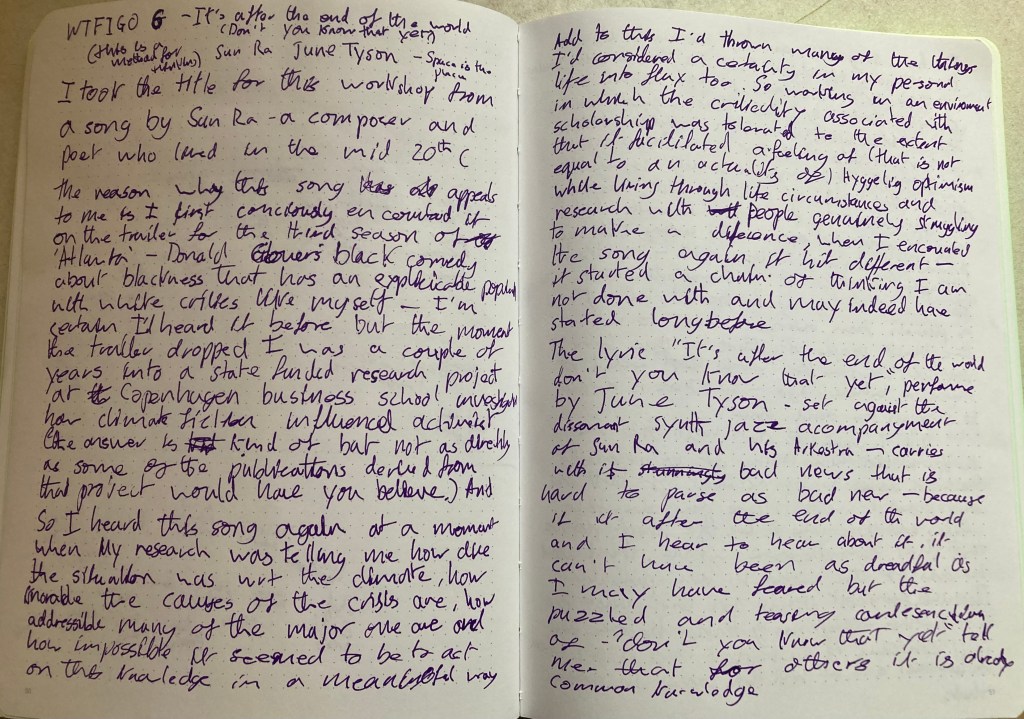 WTFIGO 6 - It's after the end of the world
(Don't you know that yet)
(this is method for
) Sun Ra June Tyson - Space is the place
I took the title for this workshop from
a song by Sun Ra - a composer and
poet who lived in the mid 20th C
The reason why this song appeals
to me is I first conciously encountard it
on the trailer for the third season of
'Atlanta' - Donald Glover's black comedy
about blackness that has an explicable
with white critics like myself - I'm
certain I'd heard it before but the moment
the trailer dropped I was a couple of
years into a state funded research project
at Copenhagen business school
how climate fiction influenced activist
(the answer is kind of but not as directly
as some of the publications derived from
that project would have you believe.) And
So I heard this song again at a moment
when my research was telling me how
the situation was wrt the climate, how
the causes of the crisis are, how
addressible many of the major one are and
how impossible it seemed to be to act
on this knowledge in a meaningful way
Add to this I'd thrown many of the things
I'd considered a certainty in my personal
life into flux too. So working in an enviroment
in which the criticality associated with
scholarship was tolerated to the extent
that it facilitated a feeling of (that is not
equal to an actuality of) Hyggelig optimism
while living through life circumstances and
research with people genuinely struggling
to make a difference, when I encounted
the song again it hit different -
it started a chain of thinking I am
not done with and may indeed have
started long before
The lyric "It's after the end of the world
don't you know that yet", performe
by June Tyson - set against the
dissonant synth jazz acompanyment
of Sun Ra and his Arkestra - carries
with it bad news that is
hard to parse as bad new - because
if it after the end of th world
and I hear to hear about it, it
can't have been as dreadful as
I may have feared but the
puzzled and teasing
of - "don't you know that yet" tell
me that for others it is already
common knowledge